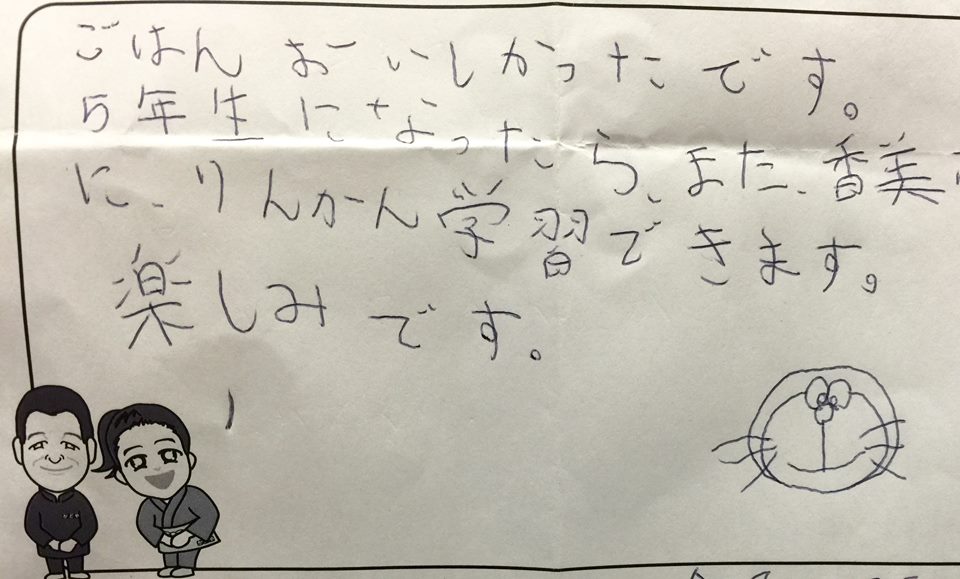 ごはん おいしかったです。
5年生になったら、また、香美
に、りんかん学習できます。
楽しみです。